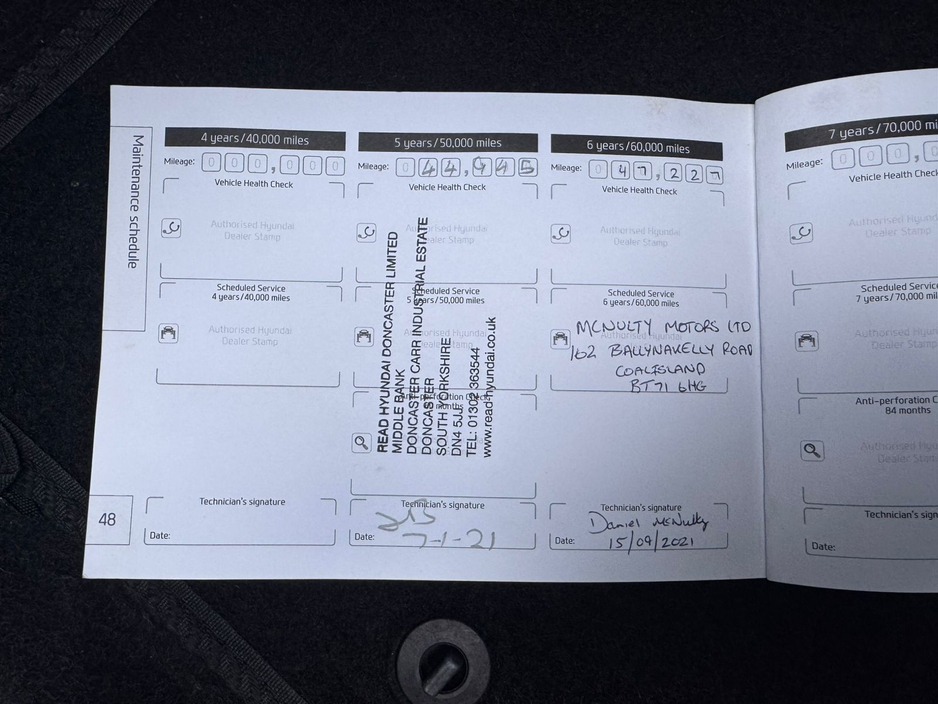 Maintenance schedule
48
4 years/40,000 miles
Mileage: 0 0 0 , 0 0 0
Vehicle Health Check
Authorised Hyundai
Dealer Stamp
Scheduled Service
4 years/40,000 miles
Authorised Hyundai
Dealer Stamp
Technician's signature
Date:
5 years/50,000 miles
Mileage: 0 4 4 , 9 4 5
Vehicle Health Check
Authorised Hyundai
Dealer Stamp
Scheduled Service
5 years/50,000 miles
Authorised Hyundai
Dealer Stamp
Anti-perforation Check
months
READ HYUNDAI DONCASTER LIMITED
MIDDLE BANK
DONCASTER CARR INDUSTRIAL ESTATE
DONCASTER
SOUTH YORKSHIRE
DN4 5JJ
TEL: 01302 363544
www.read-hyundai.co.uk
Technician's signature
Date: 7-1-21
6 years/60,000 miles
Mileage: 0 4 7 , 2 2 7
Vehicle Health Check
Authorised Hyundai
Dealer Stamp
Scheduled Service
6 years/60,000 miles
MCNULTY MOTORS LTD
162 BALLYNAKELLY ROAD
COALISLAND
BT71 6HG
Technician's signature
Daniel McNulty
Date: 15/09/2021
7 years/70,000 mi
Mileage: 0 0 0 , 0
Vehicle Health Check
Authorised Hyundai
Dealer Stamp
Scheduled Service
7 years/70,000 mil
Anti-perforation C
84 months
Authorised Hyundai
Dealer Stamp
Technician's sign
Date: